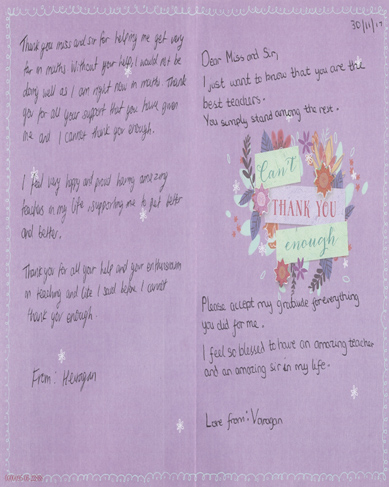 Thank you miss and sir for helping me get very
far in maths. Without your help, I would not be
doing well as I am right now in maths. Thank
you for all your support that you have given
me and I cannot thank you enough.
I feel very happy and proud having amazing
teachers in my life supporting me to get better
and better.
Thank you for all your help and your enthusiasm
in teaching and like I said before I cannot
thank you enough.
From: Hevagan
30/11/17
Dear Miss and Sir,
I just want to know that you are the
best teachers.
You simply stand among the rest.
Can't
THANK YOU
enough
Please accept my gratitude for everything
you did for me.
I feel so blessed to have an amazing teacher
and an amazing sir in my life.
Love from: Varagan